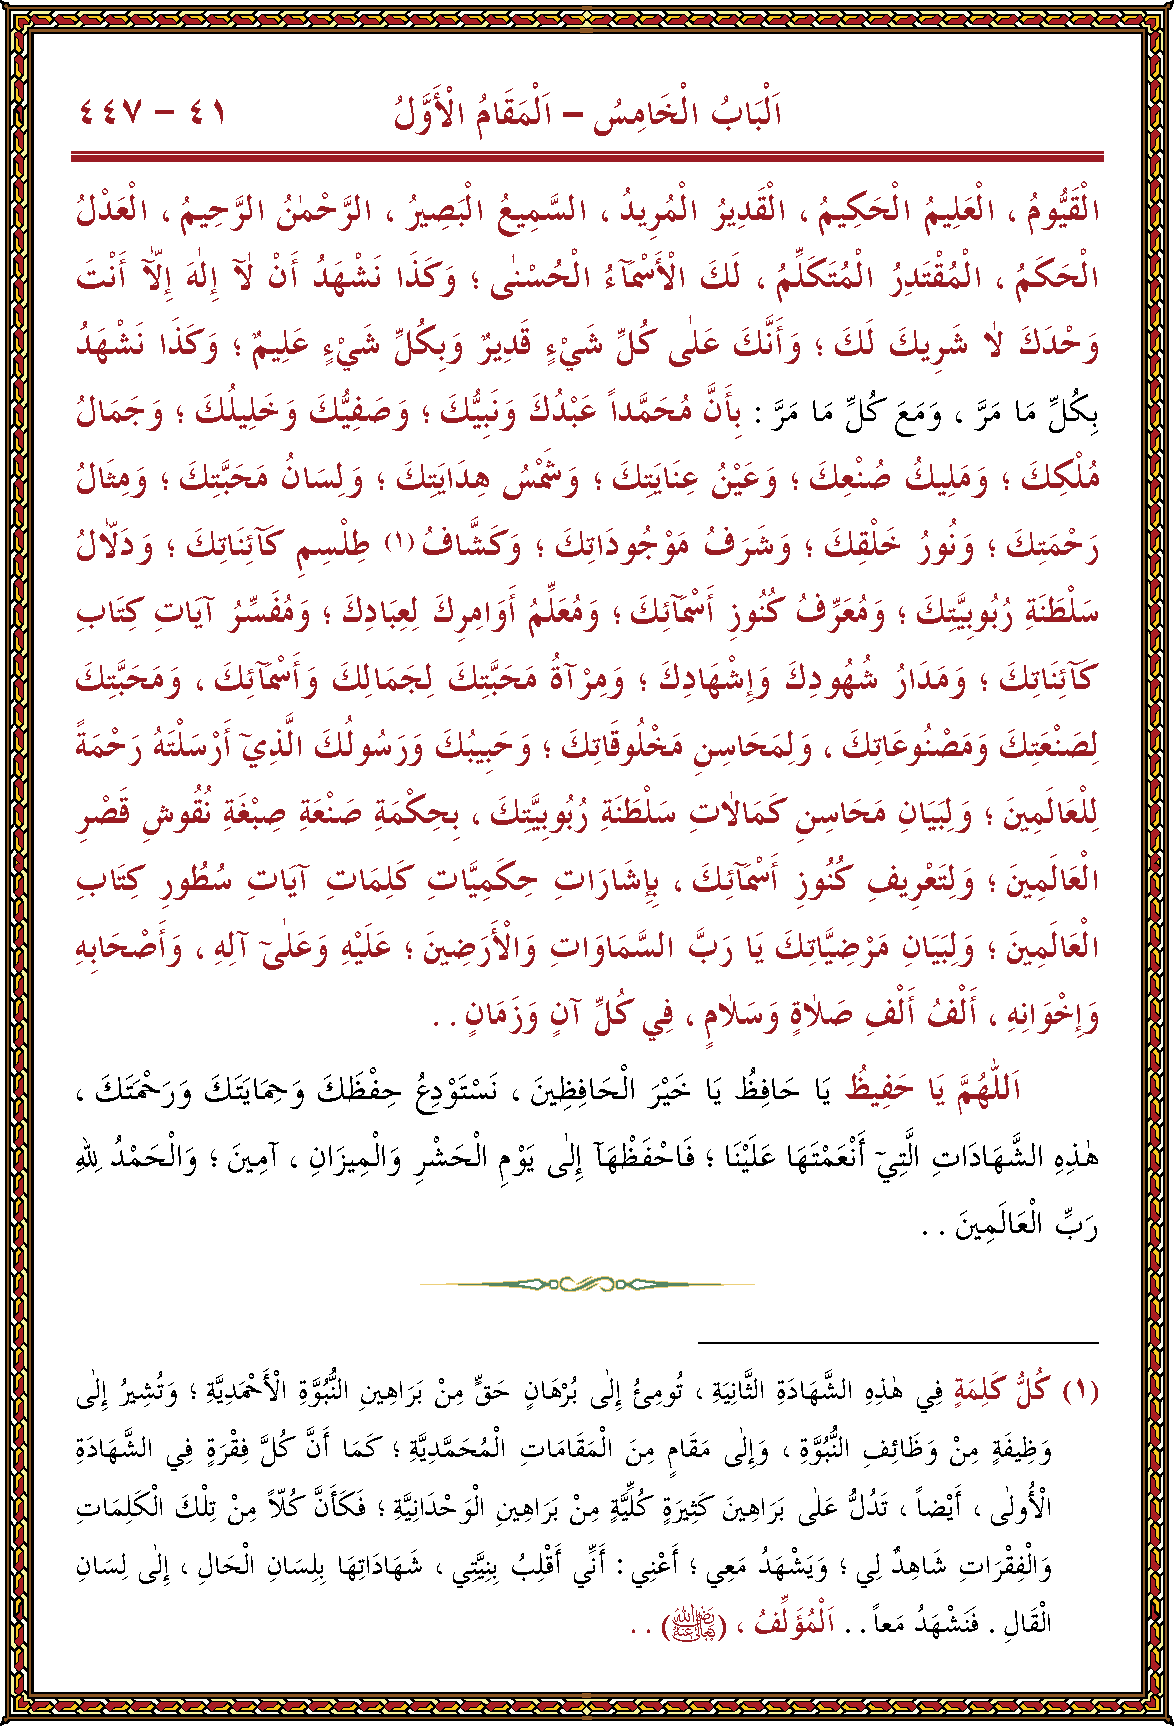 اَلْبَابُ الْخَامِسُ – اَلْمَقَامُ الْأَوَّلُ ٤١ – ٤٤٧
الْقَيُّومُ ، الْعَلِيمُ الْحَكِيمُ ، الْقَدِيرُ الْمُرِيدُ ، السَّمِيعُ الْبَصِيرُ ، الرَّحْمٰنُ الرَّحِيمُ ، الْعَدْلُ
الْحَكَمُ ، الْمُقْتَدِرُ الْمُتَكَلِّمُ ، لَكَ الْأَسْمَآءُ الْحُسْنٰى ؛ وَكَذَا نَشْهَدُ أَنْ لَآ إِلٰهَ إِلَّآ أَنْتَ
وَحْدَكَ لَا شَرِيكَ لَكَ ؛ وَأَنَّكَ عَلٰى كُلِّ شَيْءٍ قَدِيرٌ وَبِكُلِّ شَيْءٍ عَلِيمٌ ؛ وَكَذَا نَشْهَدُ
بِكُلِّ مَا مَرَّ ، وَمَعَ كُلِّ مَا مَرَّ : بِأَنَّ مُحَمَّداً عَبْدُكَ وَنَبِيُّكَ ؛ وَصَفِيُّكَ وَخَلِيلُكَ ؛ وَجَمَالُ
مُلْكِكَ ؛ وَمَلِيكُ صُنْعِكَ ؛ وَعَيْنُ عِنَايَتِكَ ؛ وَشَمْسُ هِدَايَتِكَ ؛ وَلِسَانُ مَحَبَّتِكَ ؛ وَمِثَالُ
رَحْمَتِكَ ؛ وَنُورُ خَلْقِكَ ؛ وَشَرَفُ مَوْجُودَاتِكَ ؛ وَكَشَّافُ (١) طِلْسِمِ كَآئِنَاتِكَ ؛ وَدَلَّالُ
سَلْطَنَةِ رُبُوبِيَّتِكَ ؛ وَمُعَرِّفُ كُنُوزِ أَسْمَآئِكَ ؛ وَمُعَلِّمُ أَوَامِرِكَ لِعِبَادِكَ ؛ وَمُفَسِّرُ آيَاتِ كِتَابِ
كَآئِنَاتِكَ ؛ وَمَدَارُ شُهُودِكَ وَإِشْهَادِكَ ؛ وَمِرْآةُ مَحَبَّتِكَ لِجَمَالِكَ وَأَسْمَآئِكَ ، وَمَحَبَّتِكَ
لِصَنْعَتِكَ وَمَصْنُوعَاتِكَ ، وَلِمَحَاسِنِ مَخْلُوقَاتِكَ ؛ وَحَبِيبُكَ وَرَسُولُكَ الَّذِيٓ أَرْسَلْتَهُ رَحْمَةً
لِلْعَالَمِينَ ؛ وَلِبَيَانِ مَحَاسِنِ كَمَالَاتِ سَلْطَنَةِ رُبُوبِيَّتِكَ ، بِحِكْمَةِ صَنْعَةِ صِبْغَةِ نُقُوشِ قَصْرِ
الْعَالَمِينَ ؛ وَلِتَعْرِيفِ كُنُوزِ أَسْمَآئِكَ ، بِإِشَارَاتِ حِكَمِيَّاتِ كَلِمَاتِ آيَاتِ سُطُورِ كِتَابِ
الْعَالَمِينَ ؛ وَلِبَيَانِ مَرْضِيَّاتِكَ يَا رَبَّ السَّمَاوَاتِ وَالْأَرَضِينَ ؛ عَلَيْهِ وَعَلٰىٓ آلِهِ ، وَأَصْحَابِهِ
وَإِخْوَانِهِ ، أَلْفُ أَلْفِ صَلَاةٍ وَسَلَامٍ ، فِي كُلِّ آنٍ وَزَمَانٍ . .
اَللّٰهُمَّ يَا حَفِيظُ يَا حَافِظُ يَا خَيْرَ الْحَافِظِينَ ، نَسْتَوْدِعُ حِفْظَكَ وَحِمَايَتَكَ وَرَحْمَتَكَ ،
هٰذِهِ الشَّهَادَاتِ الَّتِيٓ أَنْعَمْتَهَا عَلَيْنَا ؛ فَاحْفَظْهَآ إِلٰى يَوْمِ الْحَشْرِ وَالْمِيزَانِ ، آمِينَ ؛ وَالْحَمْدُ لِلّٰهِ
رَبِّ الْعَالَمِينَ . .
(١) كُلُّ كَلِمَةٍ فِي هٰذِهِ الشَّهَادَةِ الثَّانِيَةِ ، تُومِئُ إِلٰى بُرْهَانٍ حَقٍّ مِنْ بَرَاهِينِ النُّبُوَّةِ الْأَحْمَدِيَّةِ ؛ وَتُشِيرُ إِلٰى
وَظِيفَةٍ مِنْ وَظَائِفِ النُّبُوَّةِ ، وَإِلٰى مَقَامٍ مِنَ الْمَقَامَاتِ الْمُحَمَّدِيَّةِ ؛ كَمَا أَنَّ كُلَّ فِقْرَةٍ فِي الشَّهَادَةِ
الْأُولٰى ، أَيْضاً ، تَدُلُّ عَلٰى بَرَاهِينَ كَثِيرَةٍ كُلِّيَّةٍ مِنْ بَرَاهِينِ الْوَحْدَانِيَّةِ ؛ فَكَأَنَّ كُلّاً مِنْ تِلْكَ الْكَلِمَاتِ
وَالْفِقْرَاتِ شَاهِدٌ لِي ؛ وَيَشْهَدُ مَعِي ؛ أَعْنِي : أَنِّي أَقْلِبُ بِنِيَّتِي ، شَهَادَاتِهَا بِلِسَانِ الْحَالِ ، إِلٰى لِسَانِ
الْقَالِ . فَنَشْهَدُ مَعاً . . اَلْمُؤَلِّفُ ، (رَضِيَ اللهُ تَعَالَى عَنْهُ) . .